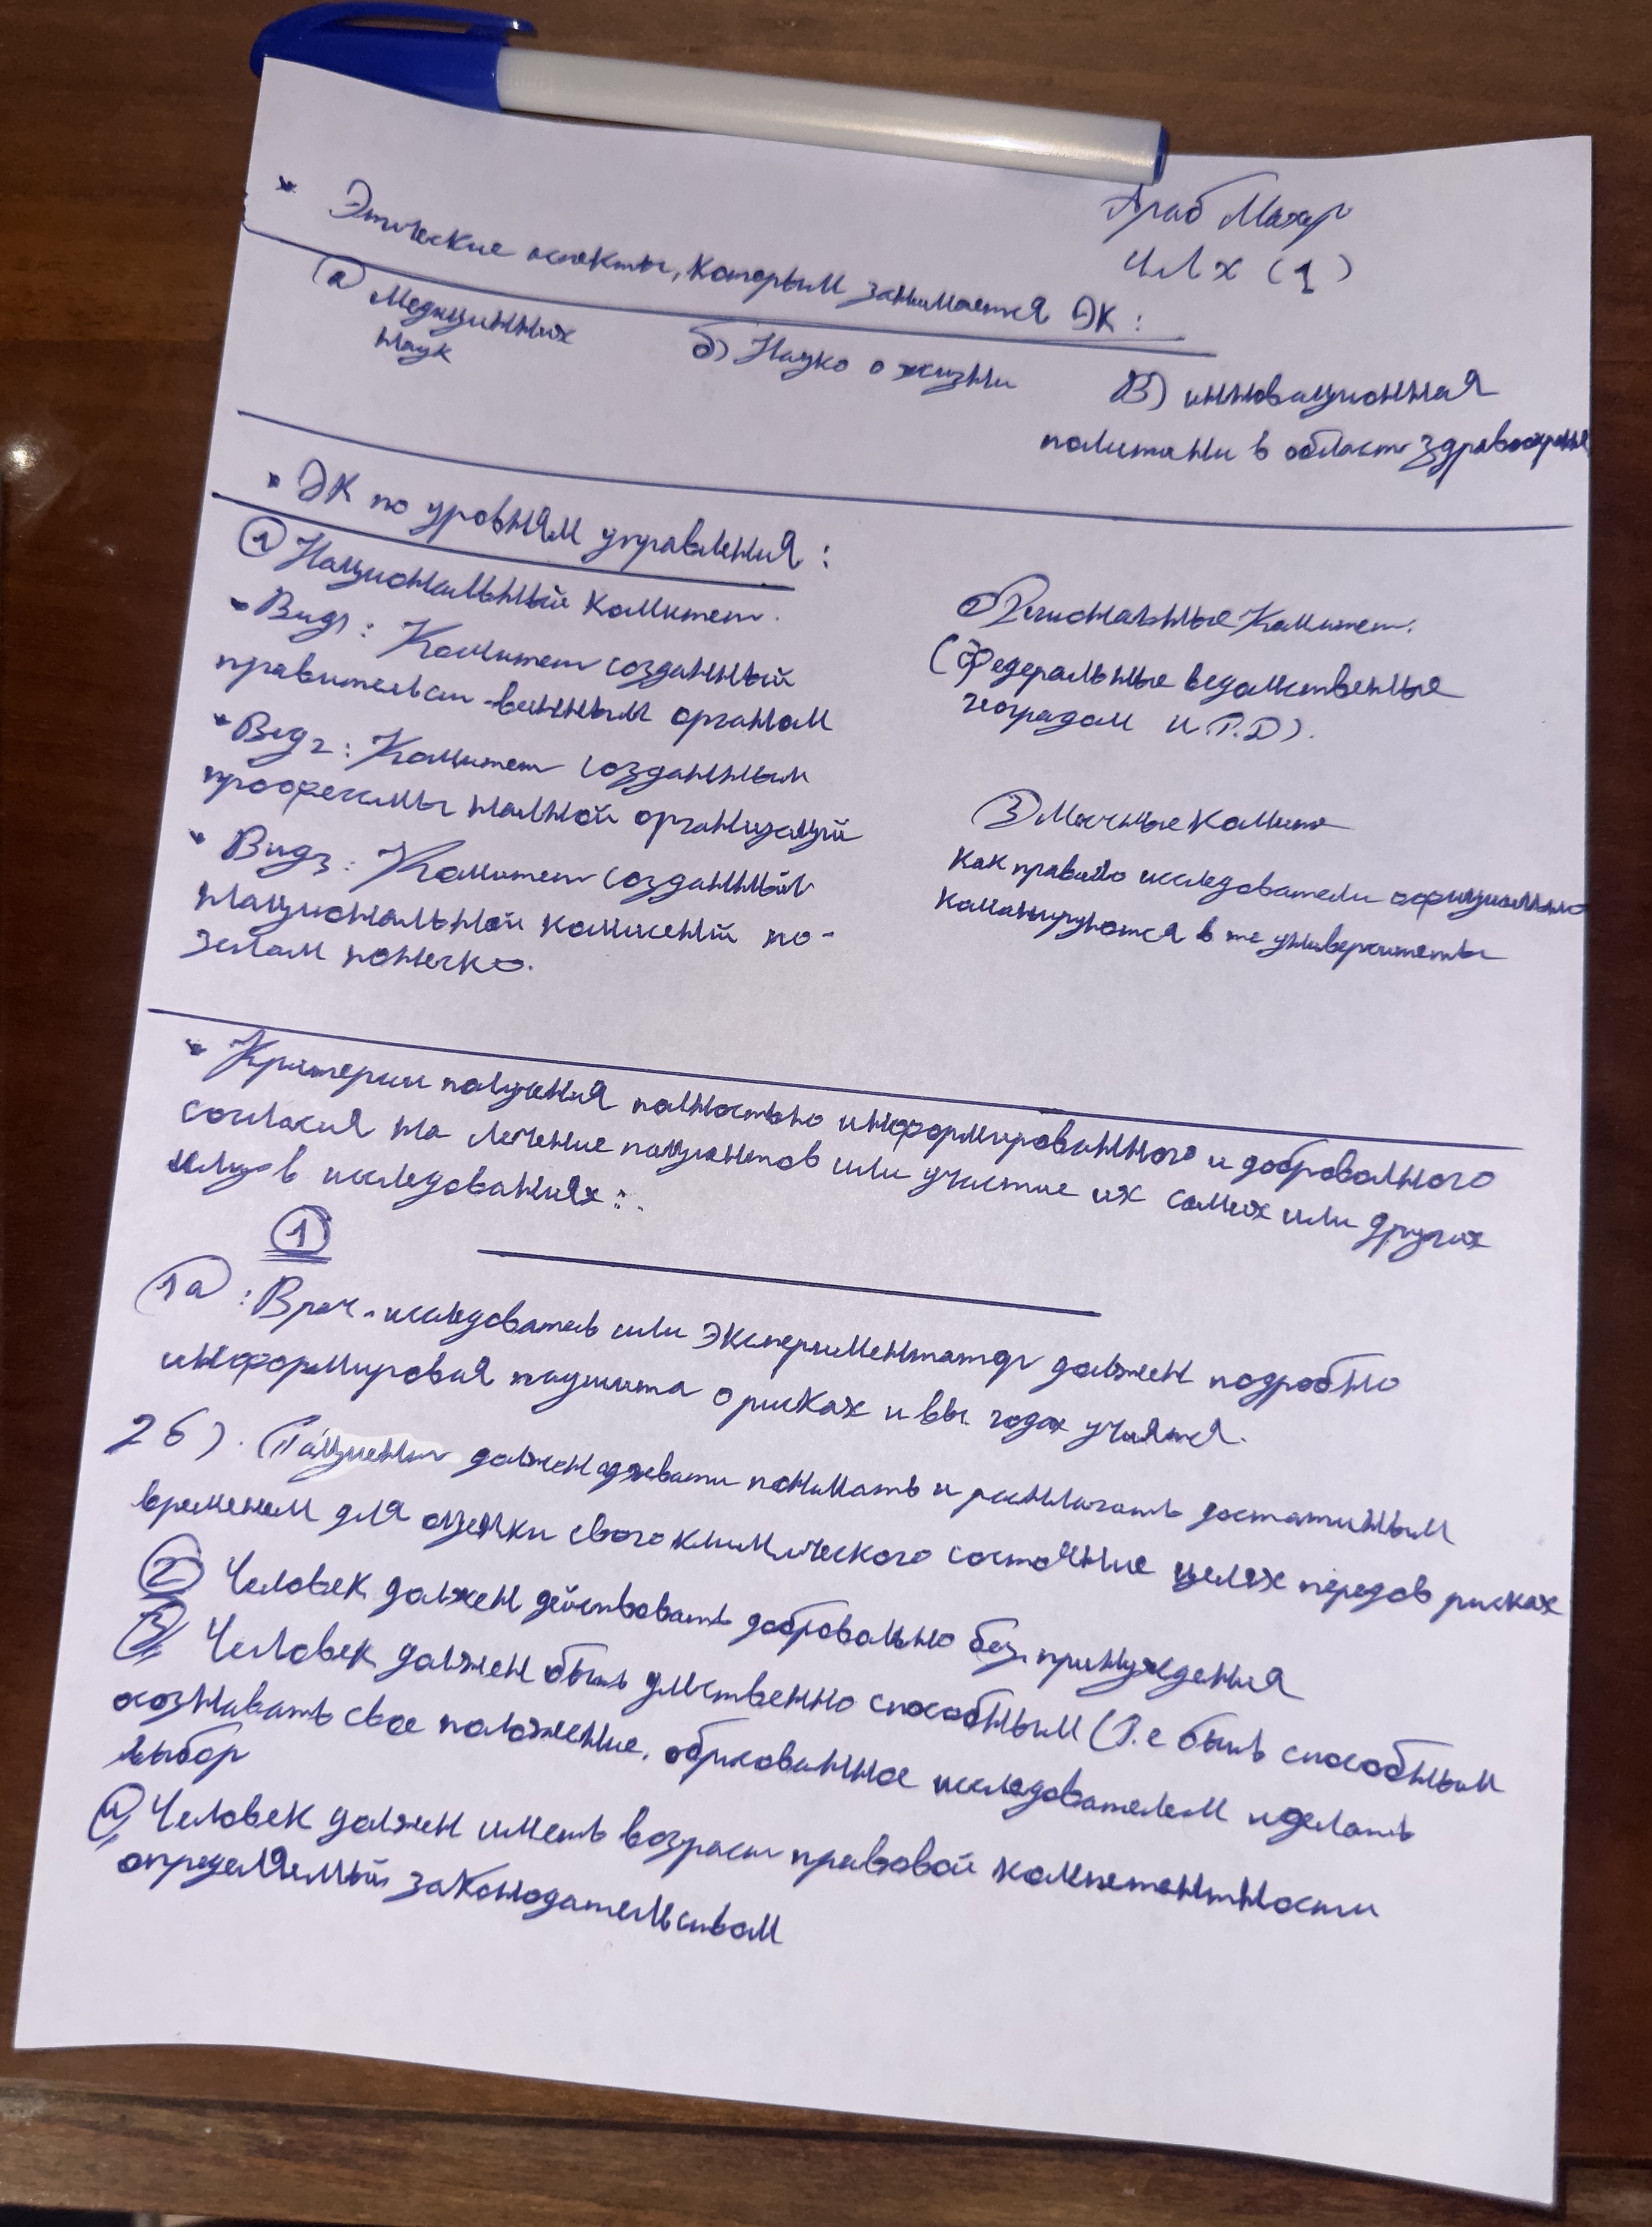 Араб Махер
ЧЛХ (1)
* Этические аспекты, которым занимается ЭК:
а) Медицинних
наук
б) Науко о жизни
В) инновационная
политани в област здравоохрания
• ЭК по уровням управления:
① Национальный комитет.
• Вид1: Комитет созданный
правительст-венным органом
• Вид2: Комитет созданным
профессиы налной организаций
• Вид3: Комитет созданный
национальной комиссией по-
зелам
② Региональные Комитет:
(Федеральные ведомственные
и Т.Д).
③ Местные комите
Как правило исследователи официально
в те университеты
• Критерии полужения полностью информированного и добровалного
согласия на лечение пациентов или участие их самих или других
лиц в исследованиях:
①
1а: Врач-исследователь или Экспериментатор должен подробно
информировая пациента о рисках и вы годах участя.
2б). Пациент должен понимать и достатичным
временем для оценки свого клинического состояние целях передов рисках
② Человек должен действовать добровольно без принуждения
③ Человек должен быть умственно способным (Т.е быть способным
осознавать свое положение, обрисованное исследователем и делать
выбор
④ Человек должен иметь возраст правовой компетентности
определяемый законодательством